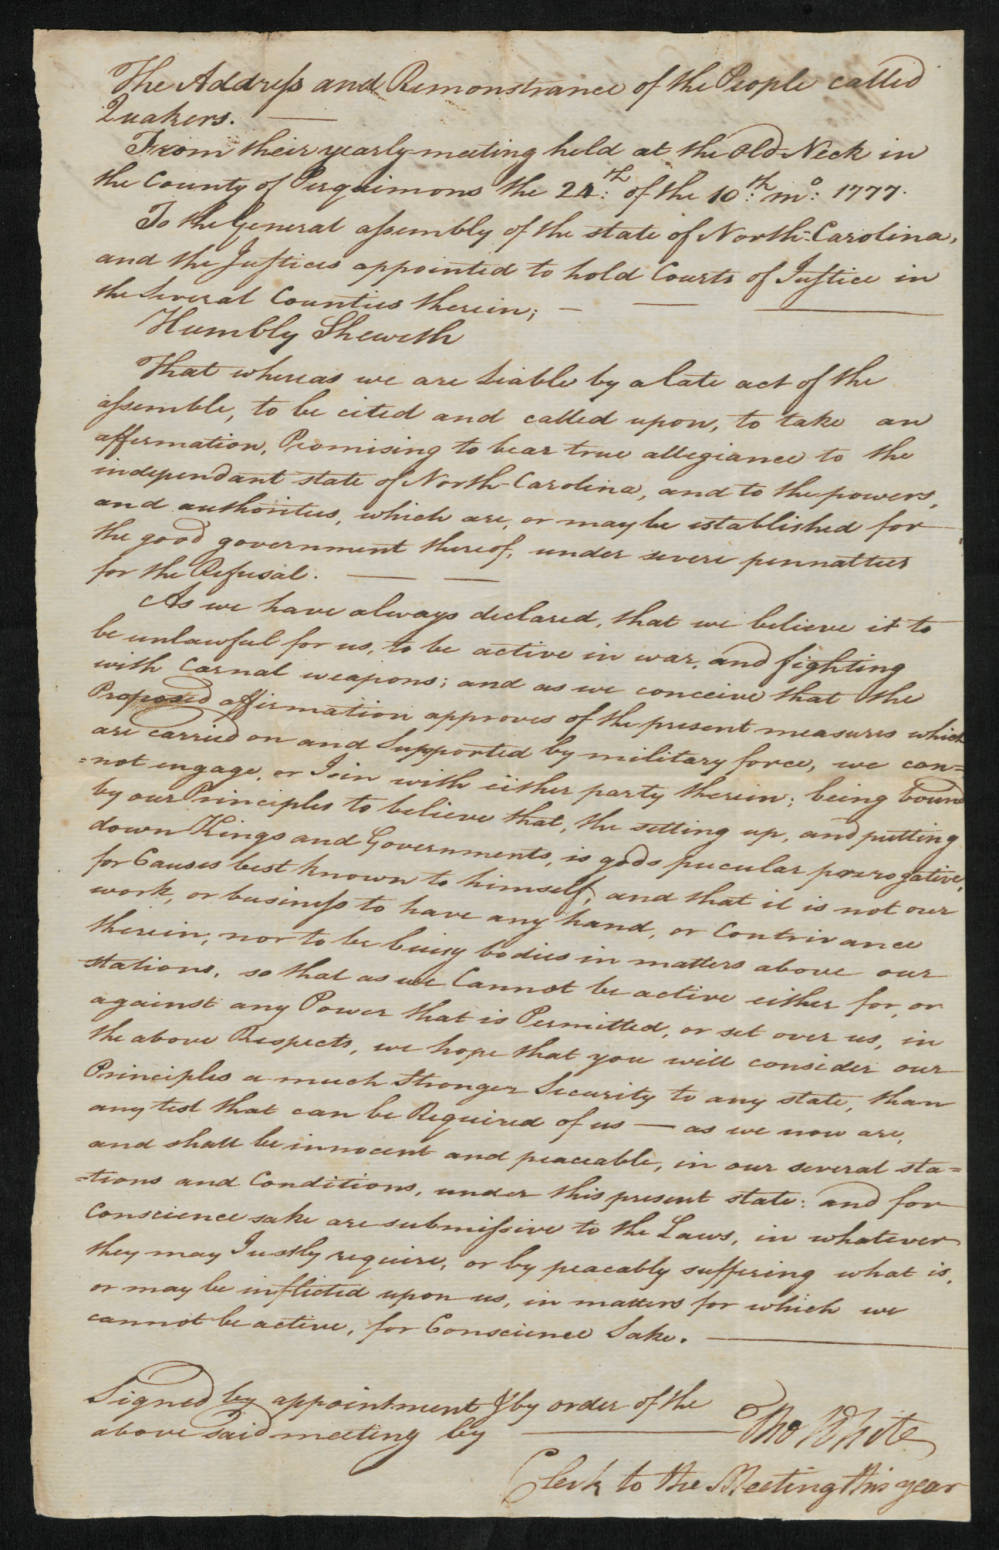 The Address and Remonstrance of the People called
Quakers. —
From their yearly meeting held at the Old Neck in
the County of Perquimons the 24:th of the 10:th mo: 1777.
To the General assembly of the state of North-Carolina,
and the Justices appointed to hold Courts of Justice in
the several Counties therein; —
Humbly Sheweth
That whereas we are Liable by a late act of the
assemble, to be cited and called upon, to take an
affirmation, Promising to bear true allegiance to the
independant state of North-Carolina, and to the powers,
and authorities, which are, or may be established for
the good government thereof, under severe pennatties
for the Refusal. — —
As we have always declared, that we believe it to
be unlawful for us, to be active in war, and fighting
with carnal weapons; and as we conceive that the
Proposed affirmation approves of the present measures which
are carried on and Supported by military force, we can=
=not engage, or Join with either party therein; being bound
by our Principles to believe that, the setting up, and putting
down Kings and Governments, is gods pucular prerogative,
for Causes best known to himself, and that it is not our
work, or business to have any hand, or Contrivance
therein, nor to be buisy bodies in matters above our
stations, so that as we Cannot be active either for, or
against any Power that is Permitted, or set over us, in
the above Respects, we hope that you will consider our
Principles a much Stronger Security to any state, than
any test that can be Required of us — as we now are,
and shall be innocent and peaceable, in our several sta=
=tions and Conditions, under this present state: and for
Conscience sake are submissive to the Laws, in whatever
they may Justly require, or by peacably suffering what is,
or may be inflicted upon us, in matters for which we
cannot be active, for Conscience Sake. —
Signed by appointment & by order of the
above said meeting by — Tho White
Clerk to the Meeting this year